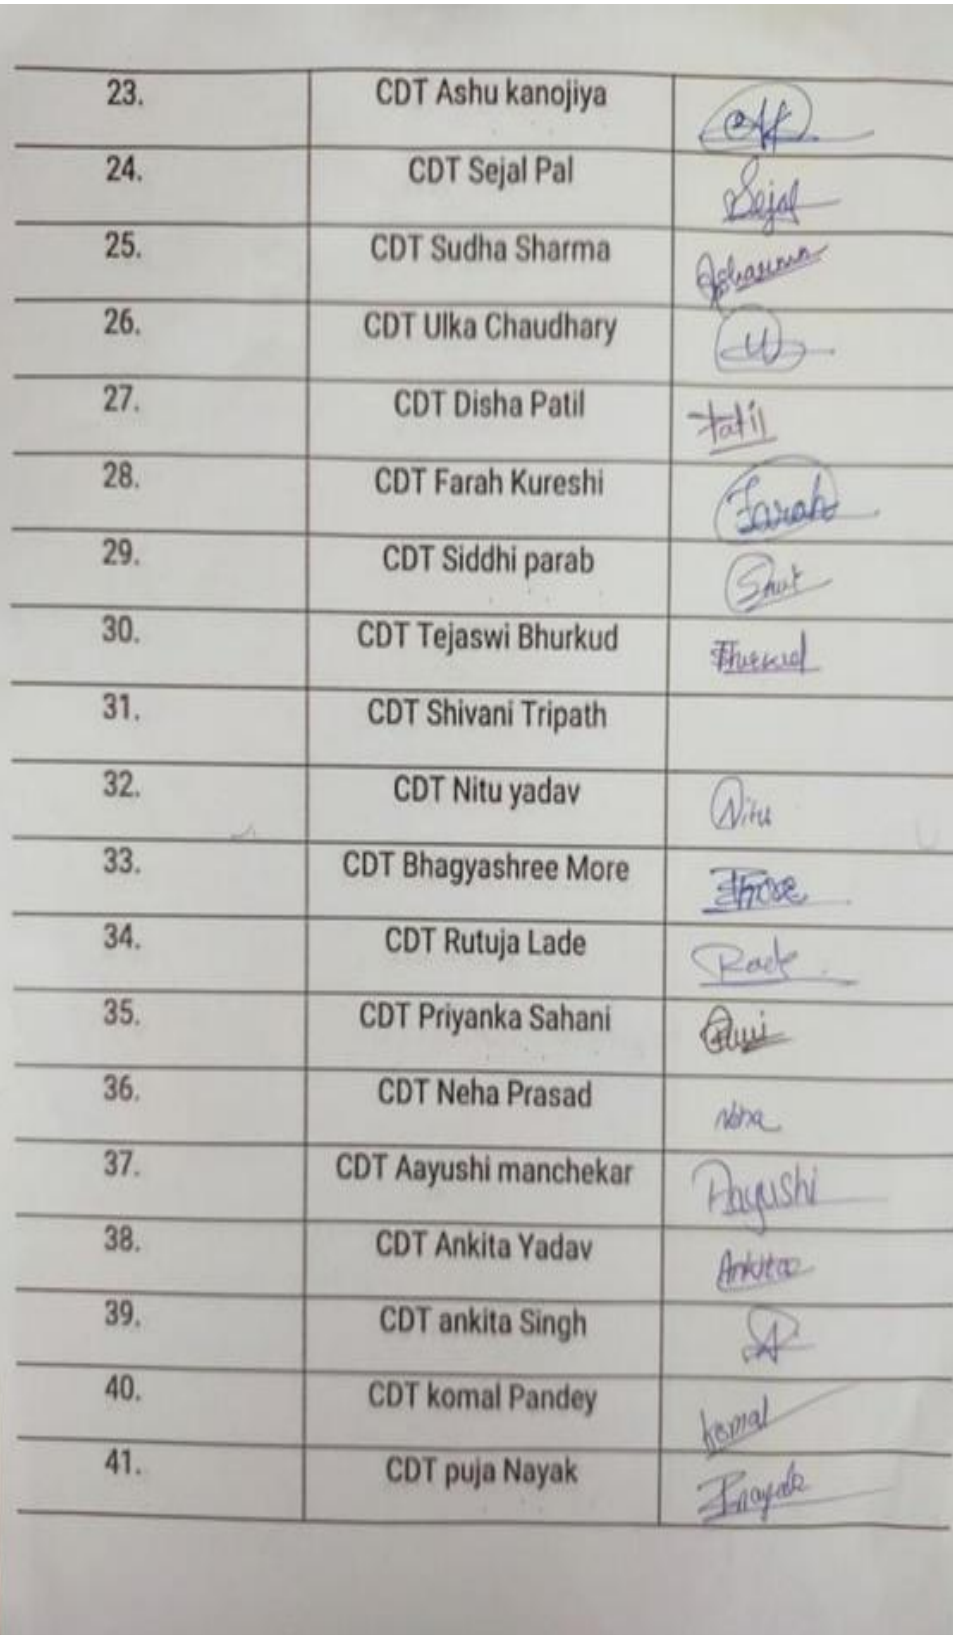 23. CDT Ashu kanojiya AK
24. CDT Sejal Pal Sejal
25. CDT Sudha Sharma
26. CDT Ulka Chaudhary U
27. CDT Disha Patil Patil
28. CDT Farah Kureshi Farah
29. CDT Siddhi parab
30. CDT Tejaswi Bhurkud Bhurkud
31. CDT Shivani Tripath
32. CDT Nitu yadav Nitu
33. CDT Bhagyashree More
34. CDT Rutuja Lade
35. CDT Priyanka Sahani
36. CDT Neha Prasad Neha
37. CDT Aayushi manchekar Aayushi
38. CDT Ankita Yadav Ankita
39. CDT ankita Singh
40. CDT komal Pandey komal
41. CDT puja Nayak Pnayak